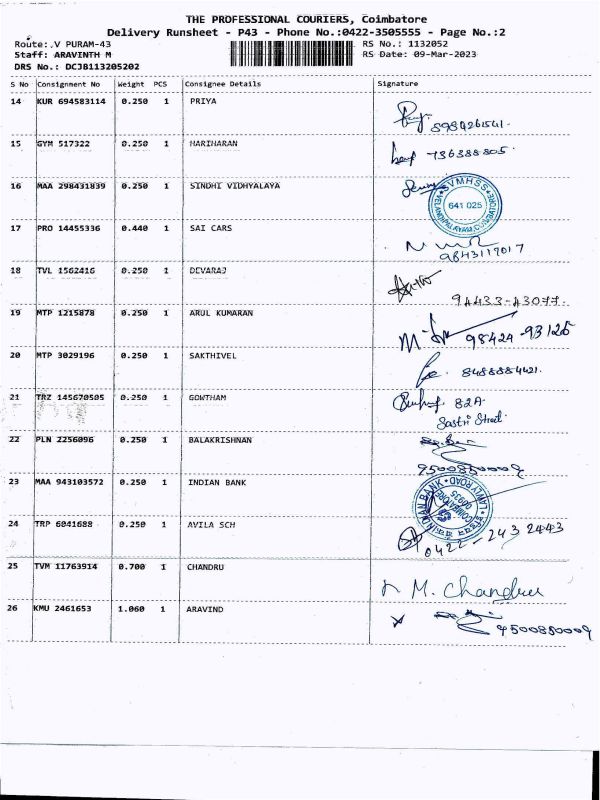 THE PROFESSIONAL COURIERS, Coimbatore
Delivery Runsheet - P43 - Phone No.:0422-3505555 - Page No.:2
Route: V PURAM-43 RS No.: 1132052
Staff: ARAVINTH M RS Date: 09-Mar-2023
DRS No.: DCJB113205202
S No Consignment No Weight PCS Consignee Details Signature
14 KUR 694583114 0.250 1 PRIYA
8984261541.
15 GYM 517322 0.250 1 HARIHARAN
736388805.
16 MAA 298431839 0.250 1 SINDHI VIDHYALAYA
SVMHSS
641 025
VELANDIPALAYAM, COIMBATORE
17 PRO 14455336 0.440 1 SAI CARS
9843117017
18 TVL 1562416 0.250 1 DEVARAJ
94433-43077.
19 MTP 1215878 0.250 1 ARUL KUMARAN
98424-93126
20 MTP 3029196 0.250 1 SAKTHIVEL
8488884421.
21 TRZ 145670505 0.250 1 GOWTHAM
82A
Sastri Street.
22 PLN 2256096 0.250 1 BALAKRISHNAN
9500850009
23 MAA 943103572 0.250 1 INDIAN BANK
INDIAN BANK
LAWLY ROAD
COIMBATORE
24 TRP 6041688 0.250 1 AVILA SCH
0422-243 2443
25 TVM 11763914 0.700 1 CHANDRU
M. Chandru
26 KMU 2461653 1.060 1 ARAVIND
9500850009